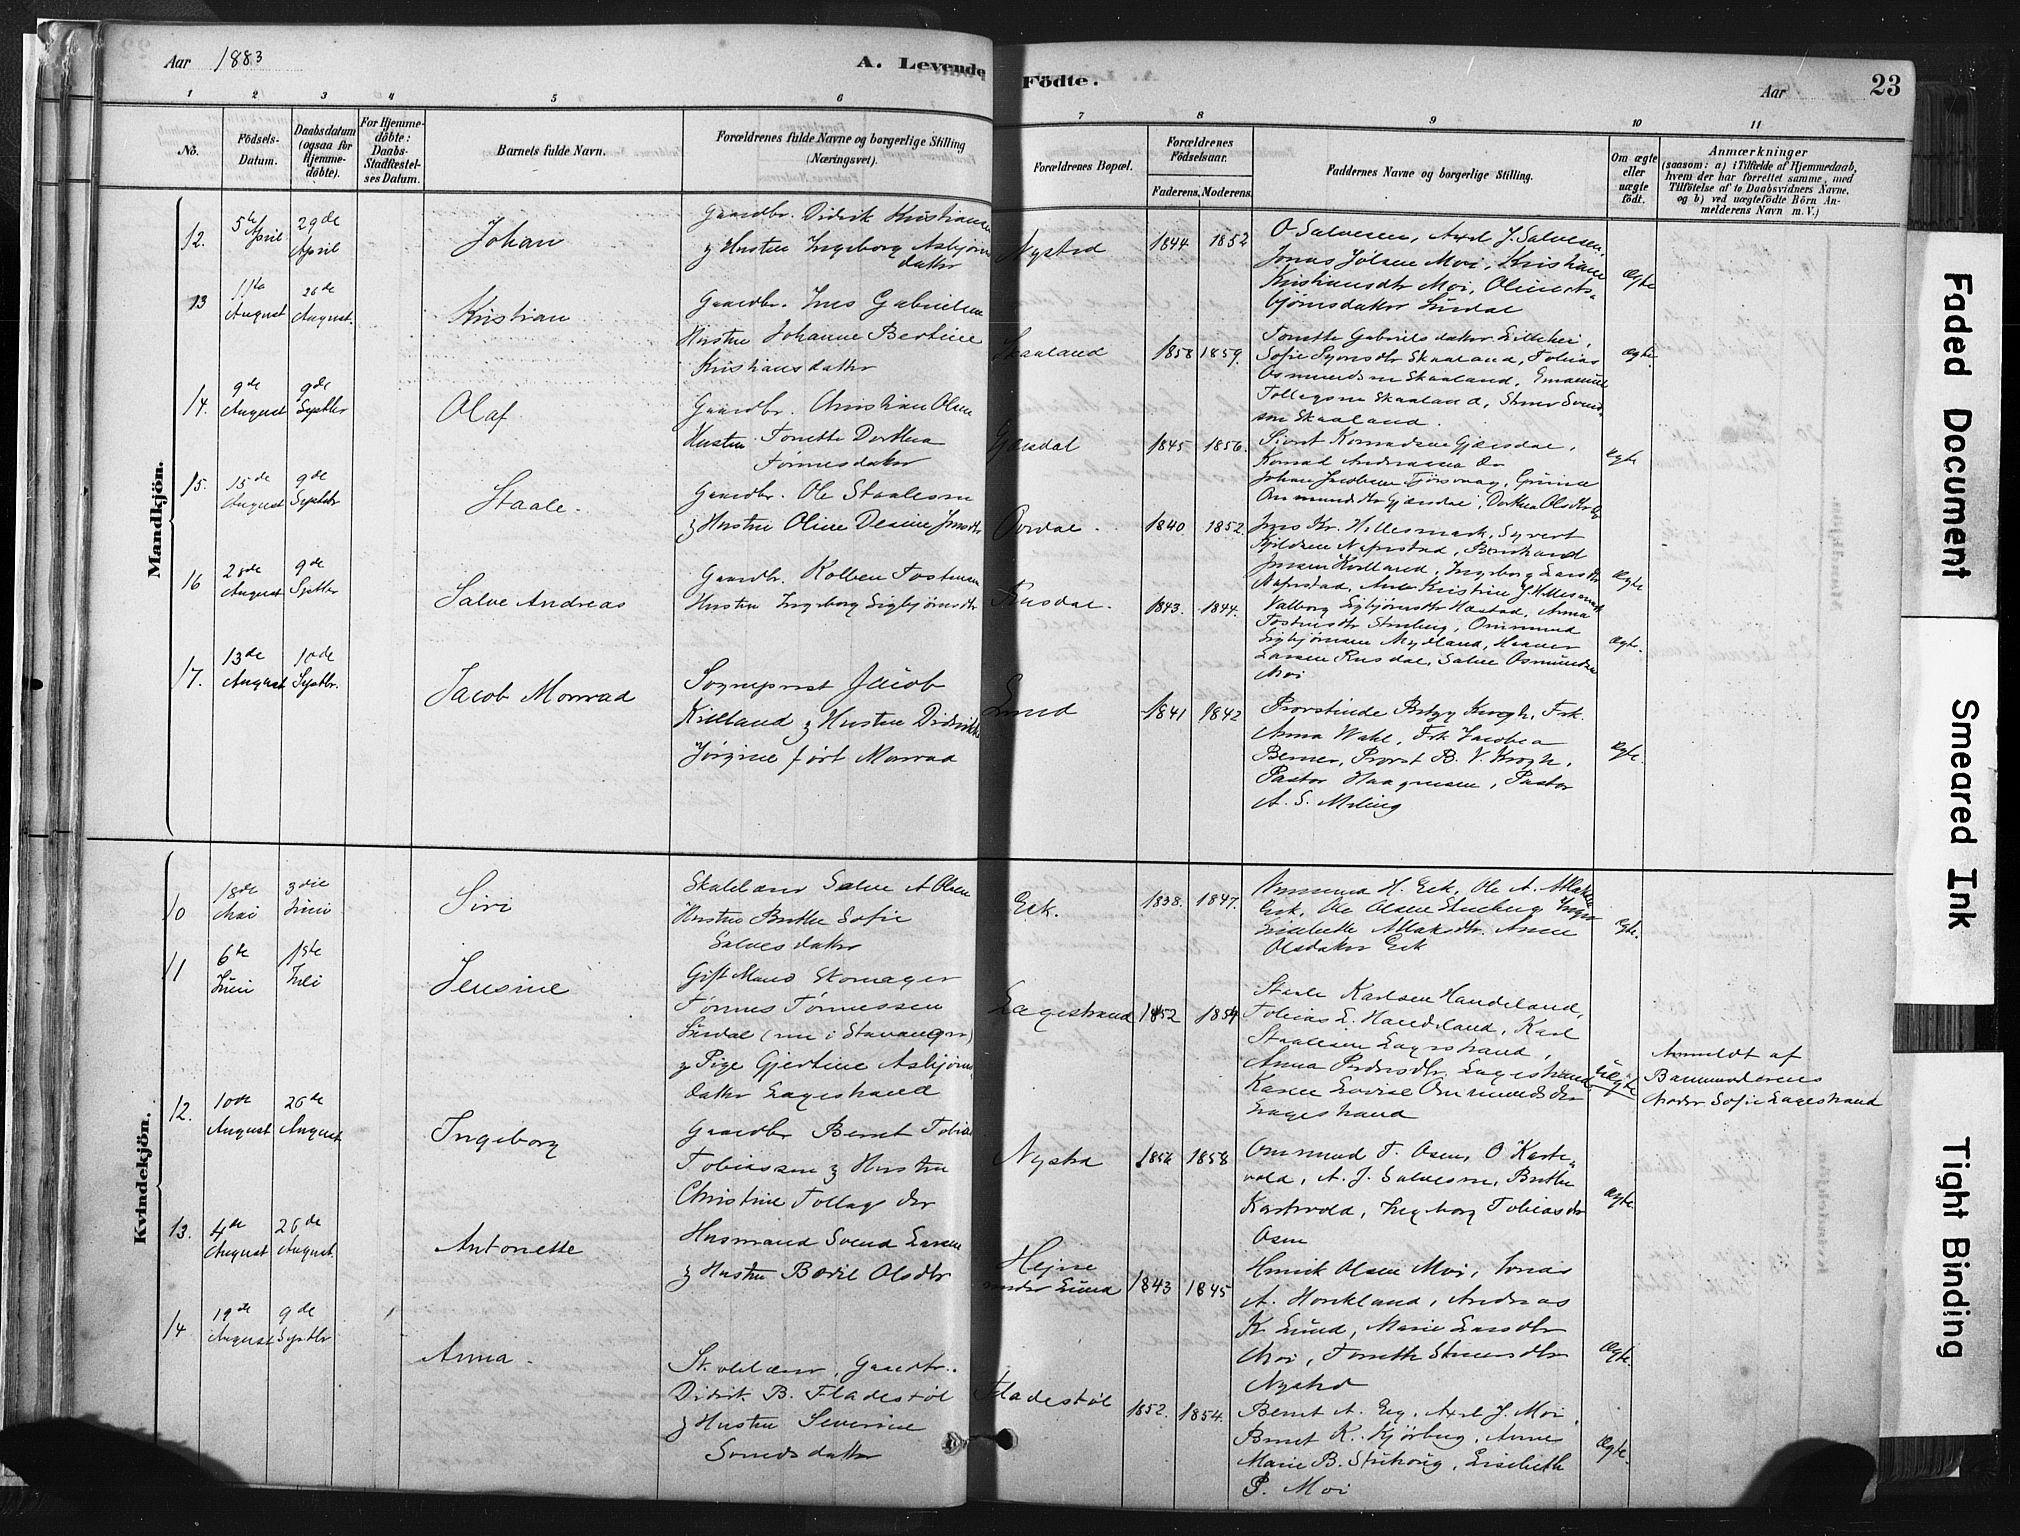 Aar 1883
A. Levende Födte.
Aar
23
1 2 3 4 5 6 7 8 9 10 11
No.
Födsels-Datum.
Daabsdatum (ogsaa for Hjemme-döbte).
For Hjemme-döbte: Daabs-Stadfæstel-ses Datum.
Barnets fulde Navn.
Forældrenes fulde Navne og borgerlige Stilling (Næringsvei).
Forældrenes Bopæl.
Forældrenes Födselsaar.
Faderens. Moderens.
Faddernes Navne og borgerlige Stilling.
Om ægte eller uægte födt.
Anmærkninger
(saasom: a) i Tilfælde af Hjemmedaab, hvem der har forrettet samme, med Tilföielse af to Daabsvidners Navne, og b) ved uægtefödte Börn An-melderens Navn m. V.)
Mandkjön.
12. 5te April 29de April
Johan
Gaardbr. Didrik Kristiansen
& Hustru Ingeborg Asbjørns
datter
Nystad
1844 1852
O Salvesen, Axel J. Salvesen,
Jonas Jølsen Moi, Kristiane
Kristiansdtr Moi,
bjørnsdatter Surdal
Ægte
13 11te August 26de August.
Kristian
Gaardbr. Jens Gabrielsen
Hustru Johanne Bertine
Kristiansdatter
Skaaland
1858 1859.
Tonette Gabrielsdatter
Sofie Skaaland, Tobias
Osmundsen Skaaland, Emanuel
Tollegsen Skaaland,
Skaaland.
Ægte.
14. 9de August 9de Septbr
Olaf
Gaardbr. Christian Olsen
Hustru Tonette Dorthea
Tønnesdatter
Gjærsdal
1845 1856.
Sivert Konradsen Gjærsdal,
Konrad Andreasen Do
Johan Jacobsen
Ommundsdtr Gjærsdal, Dorthea Olsdtr
Ægte
15. 15de August 9de Septbr
Staale.
Gaardbr. Ole Staalesen
& Hustru Oline Jensdtr
1840 1852.
Jens Kr. Hellesmark, Syvert
Bernhard
Ingeborg Larsdtr
Kristine J. Hellesmark
Ægte
16 28de August 9de Septbr
Salve Andreas
Gaardbr. Kolben Tostensen
Hustru Ingeborg Sigbjørnsdtr
Rusdal.
1843. 1844.
Valborg Sigbjørnsdtr Hæstad, Anna
Tostensdtr Stenberg, Ommund
Sigbjørnsen Mydland,
Larsen Rusdal, Salve Osmundsen
Moi
Ægte.
17. 13de August 10de Septbr.
Jacob Monrad
Sogneprest Jacob
Kielland & Hustru Didrikke
Jørgine født Monrad
Lund
1841 1842
Provstinde Krogh, Frk.
Anna Wahl, Frk Jacobea
Berner, Provst B. V. Krogh,
Pastor Haagensen, Pastor
A. S.
Ægte.
Kvindekjön.
10 18de Mai 3die Juni
Siri
Skolelærer Salve A Olsen
Hustru Berthe Sofie
Salvesdatter
Eik.
1838. 1847.
Ommund H. Eik, Ole A.
Eik, Ole Olsen
Lisebeth Anne
Olsdatter Eik
Ægte.
11 6te Juni 1ste Juli
Jensine
Gift Mand Skomager
Tønnes Tønnessen
Surdal (nu i Stavanger)
& Pige Gjertine Asbjørns
datter Eagestrand
Eagestrand
1852 1854
Staale Karlsen Handeland,
Tobias L. Handeland, Karl
Staalesen Eagestrand,
Anna Pedersdtr. Eagestrand
Karen Lovise Ommundsdtr
Eagestrand
Uægte
Anmeldt af
Barnemoderens
Moder Sofie Eagestrand
12. 10de August 26de August
Ingeborg
Gaardbr Bernt Tobias
Tobiassen & Hustru
Christine Tollagsdtr
Nystad
1856 1858
Ommund T. Osen, O Karte-
vold, A. J. Salvesen, Berthe
Kartevold, Ingeborg Tobiasdtr
Osen
Ægte.
13. 4de August 26de August.
Antonette
Husmand Svend Larsen
& Hustru Boel Olsdtr
Hejne
under Lund
1843 1845
Henrik Olsen Moi, Jonas
A. Haukland, Andreas
K Lund, Marie Larsdtr
Moi, Tonette Stensdtr
Nystad
Ægte.
14 19de August 9de Septbr
Anna.
Skolelærer, Gaardbr.
Didrik B. Fladestøl
& Hustru Severine
datter
Fladestøl
1852. 1854.
Bernt A. Eeg, Axel J. Moi,
Bernt K. Kjørberg, Anne
Marie B. Lisebeth
P. Moi
Ægte.
Faded Document
Smeared Ink
Tight Binding